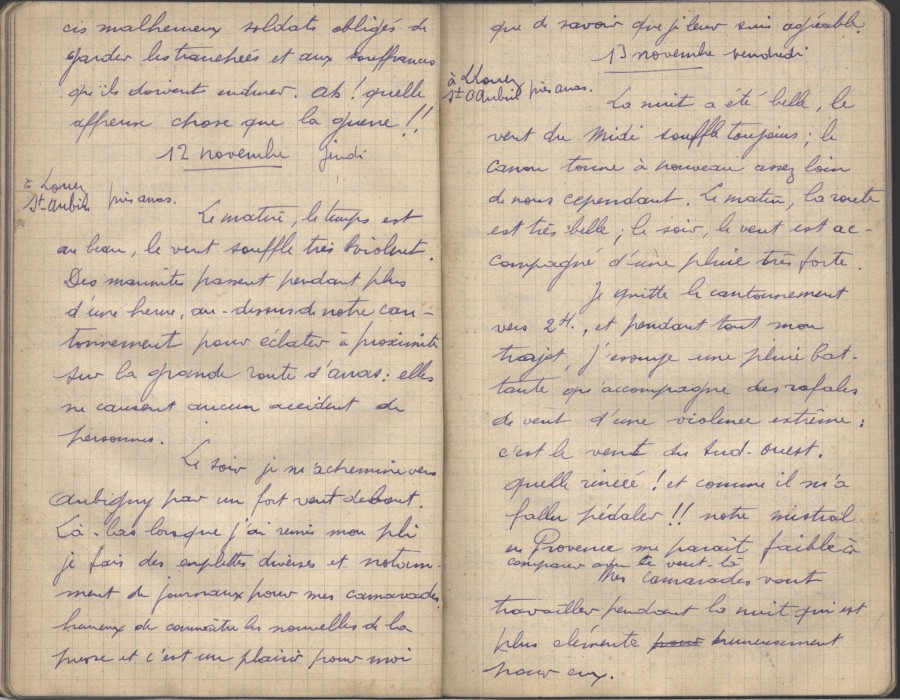 ces malheureux soldats obligés de
garder les tranchées et aux souffrances
qu'ils doivent endurer. Ah! quelle
affreux chose que la guerre!!
12 novembre jeudi
à Louez
St-Aubin près arras.
Le matin, le temps est
au beau, le vent souffle très violent.
Des marmites passent pendant plus
d'une heure, au-dessus de notre can-
tonnement pour éclater à proximité
sur la grande route d'arras: elles
ne causent aucun accident de
personnes.
Le soir je m'achemine vers
Aubigny par un fort vent debout.
Là-bas lorsque j'ai remis mon pli
je fais des emplettes diverses et notam-
ment de journaux pour mes camarades
heureux de connaître les nouvelles de la
presse et c'est un plaisir pour moi
que de savoir que je leur suis agréable.
13 novembre vendredi
à Louez
St Aubin près arras.
La nuit a été belle, le
vent du Midi souffle toujours; le
canon tonne à nouveau assez loin
de nous cependant. Le matin, la route
est très belle; le soir, le vent est ac-
compagné d'une pluie très forte.
Je quitte le cantonnement
vers 2H., et pendant tout mon
trajet, j'essuye une pluie bat-
tante qu'accompagne des rafales
de vent d'une violence extrême:
c'est le vent du Sud-Ouest.
quelle rincée! et comme il m'a
fallu pédaler!! notre mistral
en Provence me parait faible à
comparer avec ce vent-là
Mes camarades vont
travailler pendant la nuit qui est
plus clémente pour heureusement
pour eux.